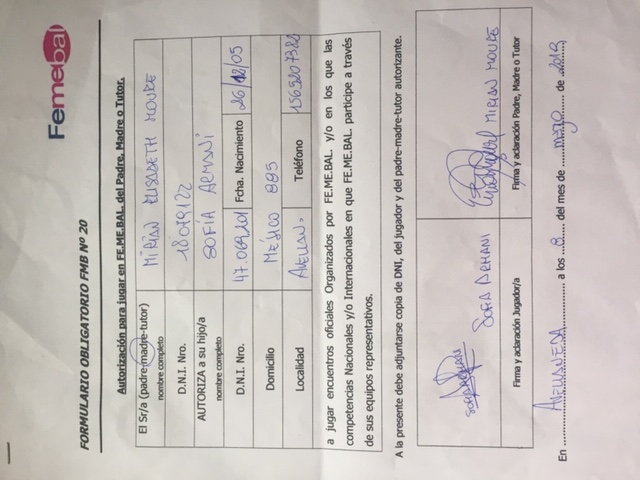 Femebal
FORMULARIO OBLIGATORIO FMB Nº 20
Autorización para jugar en FE.ME.BAL. del Padre, Madre o Tutor.
El Sr/a (padre-madre-tutor) MIRIAN ELISABETH MOURE
nombre completo
D.N.I. Nro. 18079122
AUTORIZA a su hijo/a SOFIA ARMANI
nombre completo
D.N.I. Nro. 47.069.201 Fcha. Nacimiento 26/12/05
Domicilio MEJICO 885
Localidad AVELLAN. Teléfono
a jugar encuentros oficiales Organizados por FE.ME.BAL. y/o en los que las
competencias Nacionales y/o Internacionales en que FE.ME.BAL participe a través
de sus equipos representativos.
A la presente debe adjuntarse copia de DNI, del jugador y del padre-madre-tutor autorizante.
SOFIA ARMANI MIRIAN MOURE
Firma y aclaración Jugador/a Firma y aclaración Padre, Madre o Tutor
En AVELLANEDA a los 8 del mes de MAYO de 2019